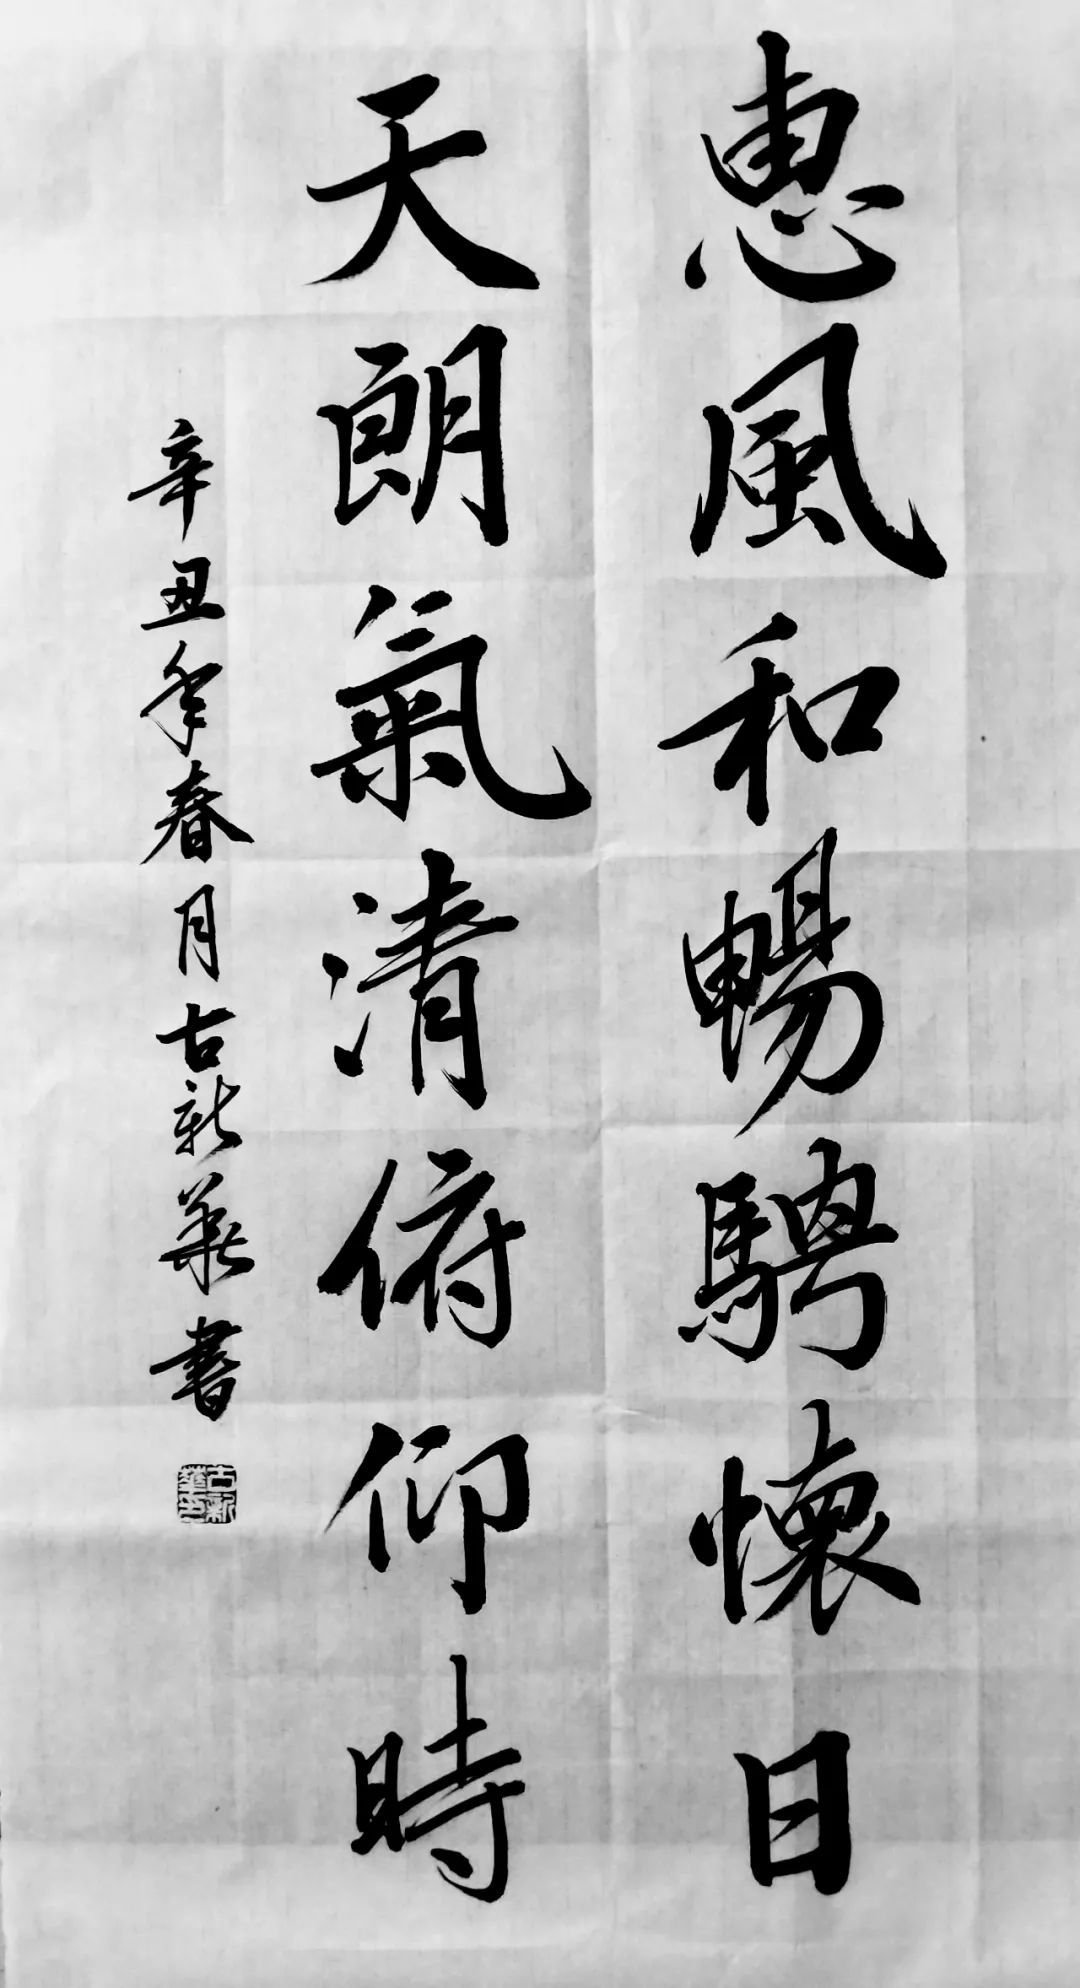 惠風和暢騁懷日
天朗氣清俯仰時
辛丑年春月古新華書
古新華印